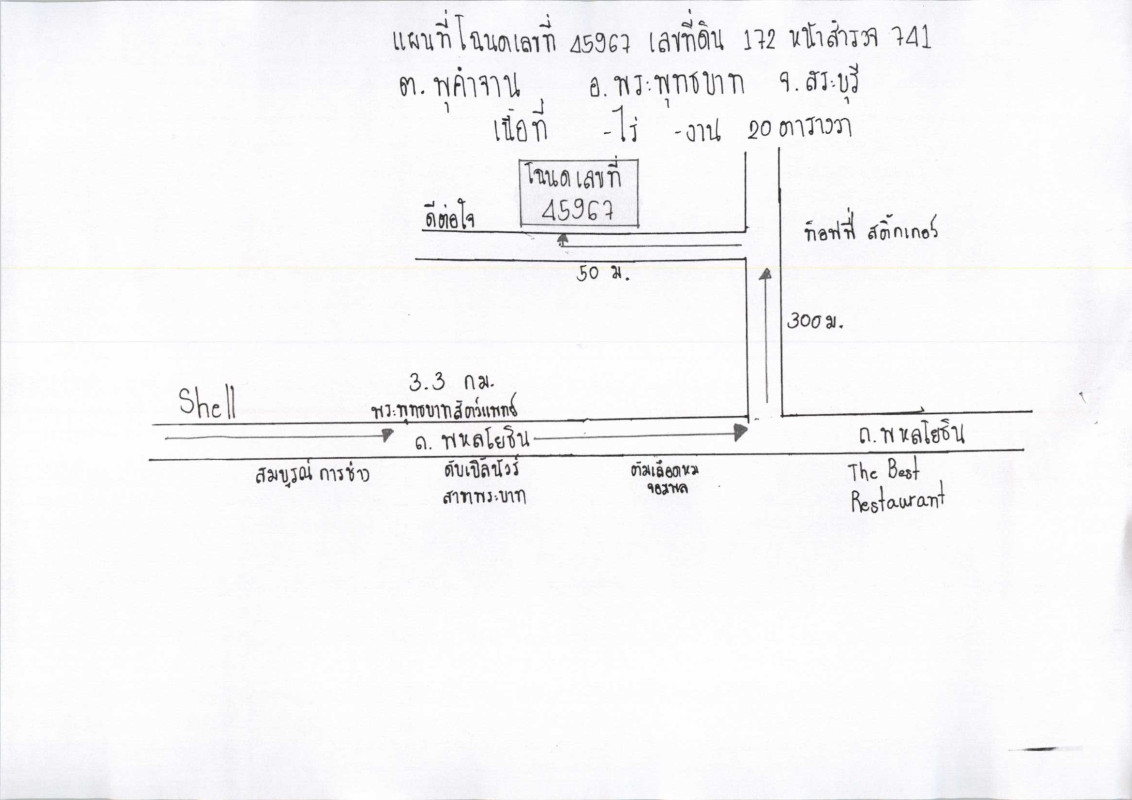 แผนที่โฉนดเลขที่ 45967 เลขที่ดิน 172 หน้าสำรวจ 741
ต. พุคำจาน อ. พระพุทธบาท จ. สระบุรี
เนื้อที่ -ไร่ -งาน 20 ตารางวา
โฉนดเลขที่
45967
ดีต่อใจ
ท็อฟฟี่ สติ๊กเกอร์
50 ม.
300 ม.
Shell
3.3 กม.
พระพุทธบาทสัตว์แพทย์
ถ. พหลโยธิน
ถ. พหลโยธิน
สมบูรณ์ การช่าง
ดับเบิ้ลนัวร์
สาขาพระบาท
ต้มเลือดหมู
จอมพล
The Best
Restaurant